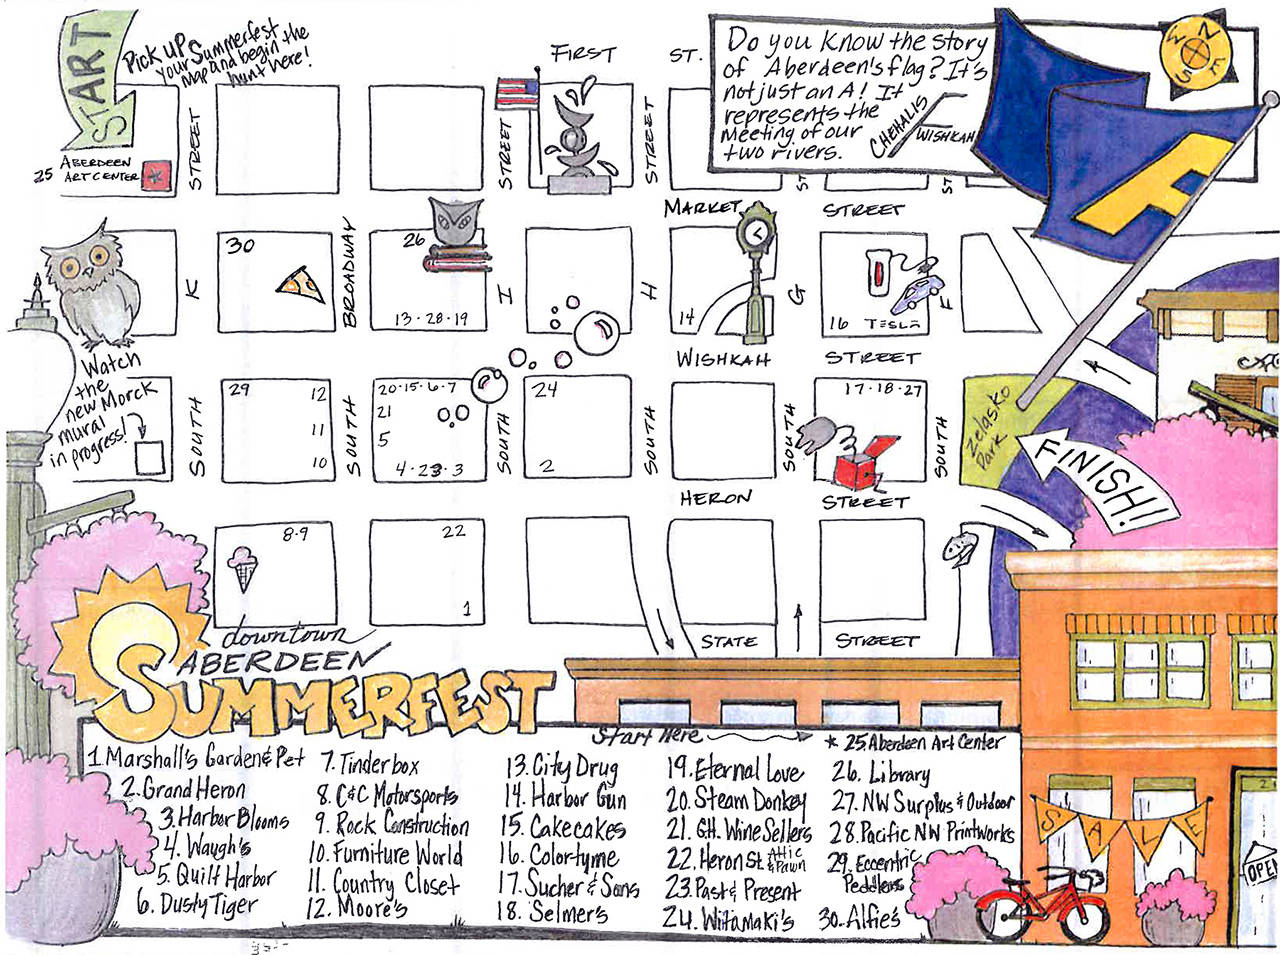 START
Pick up
your Summerfest
map and begin the
hunt here!
FIRST
ST.
Do you know the story
of Aberdeen's flag? It's
not just an A! It
represents the
meeting of our
two rivers.
CHEHALIS
WISHKAH
N
E
S
W
A
25 ABERDEEN
ART CENTER
*
STREET
STREET
STREET
ST
ST
MARKET
STREET
K
BROADWAY
I
H
G
F
30
26
13·28·19
14
16 TESLA
WISHKAH
STREET
Watch
the
new Morck
mural
in progress!
SOUTH
SOUTH
SOUTH
SOUTH
SOUTH
SOUTH
29
12
11
10
20·15·6·7
21
5
4·23·3
24
2
17·18·27
Zelasko
Park
FINISH!
HERON
STREET
8·9
22
1
STATE
STREET
downtown
ABERDEEN
SUMMERFEST
Start Here
1 Marshall's Garden & Pet
2. Grand Heron
3. Harbor Blooms
4. Waugh's
5. Quilt Harbor
6. Dusty Tiger
7. Tinderbox
8. C&C Motorsports
9. Rock Construction
10. Furniture World
11. Country Closet
12. Moore's
13. City Drug
14. Harbor Gun
15. Cakecakes
16. Colortyme
17. Sucher & Sons
18. Selmer's
19. Eternal Love
20. Steam Donkey
21. GH. Wine Sellers
22. Heron St. Attic & Pawn
23. Past & Present
24. Wiitamaki's
* 25 Aberdeen Art Center
26. Library
27. NW Surplus & Outdoor
28. Pacific NW Printworks
29. Eccentric
Peddlers
30. Alfie's
SALE
OPEN